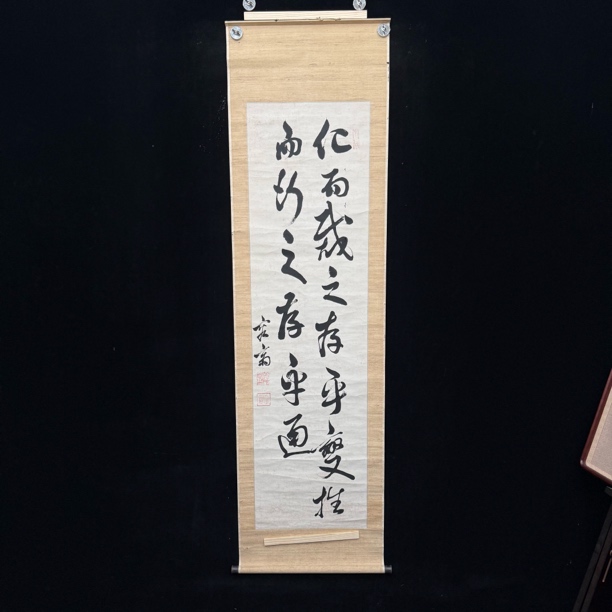 化而裁之存乎變推
而行之存乎通